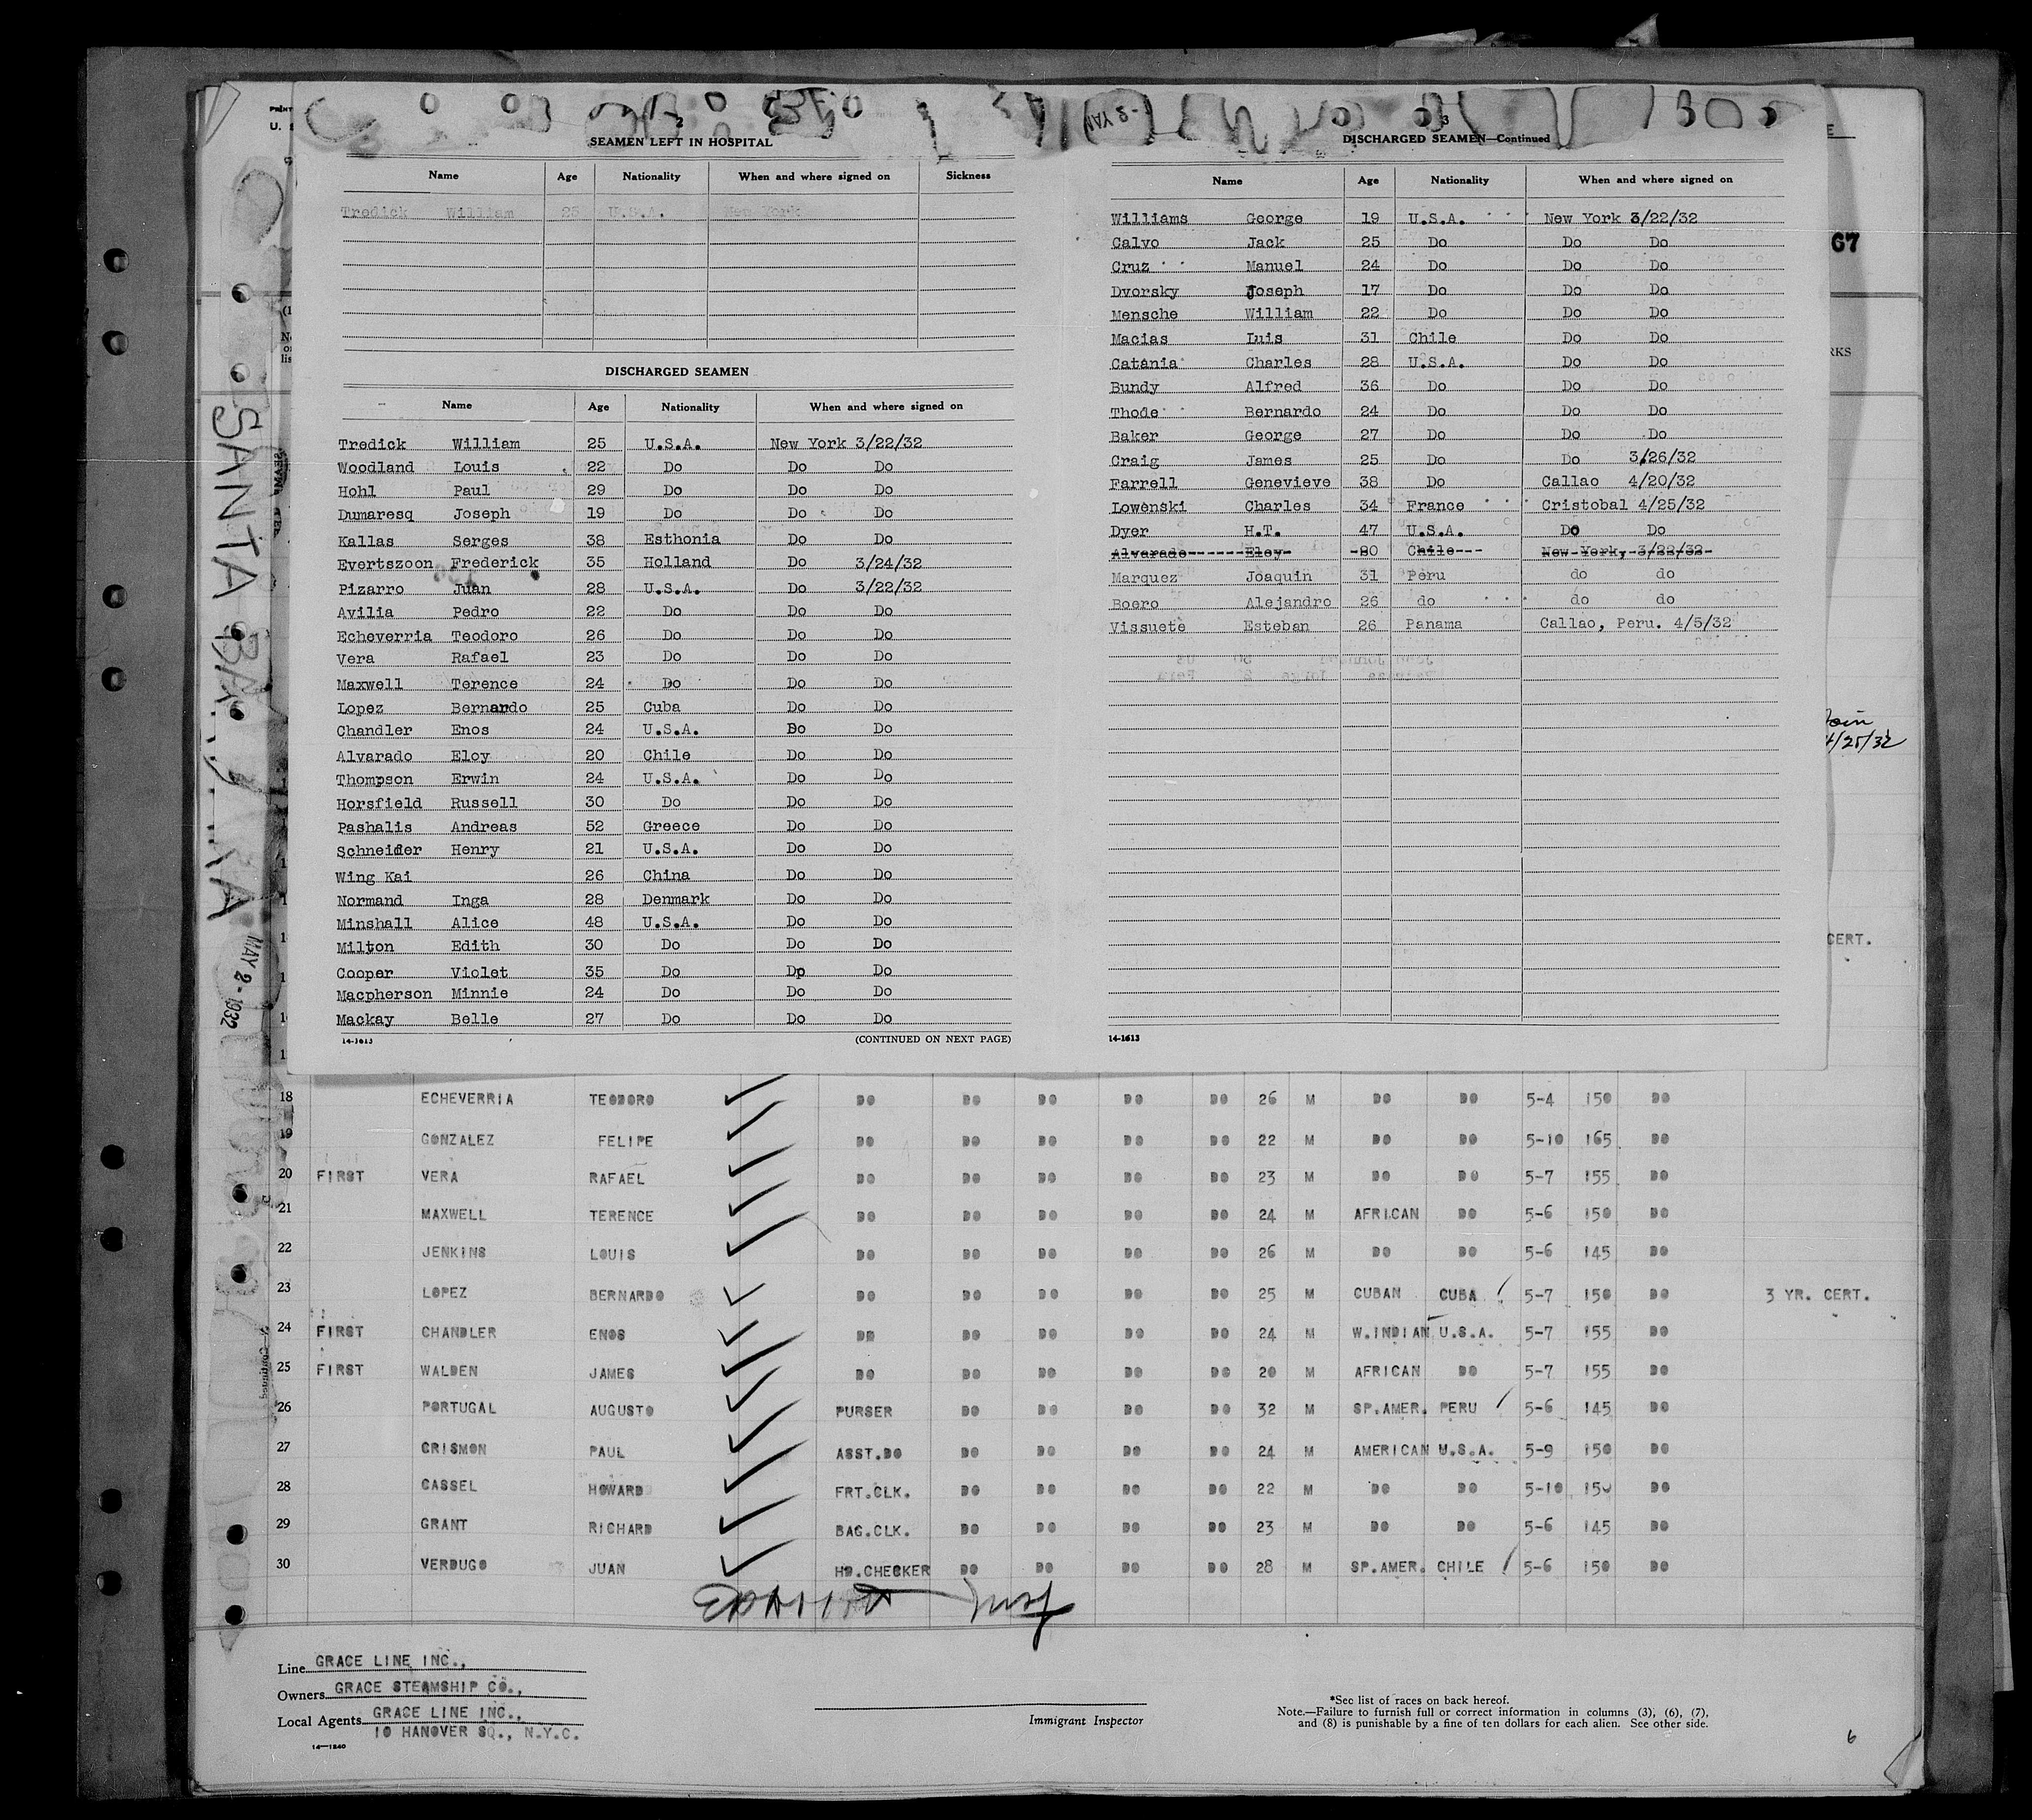 2
SEAMEN LEFT IN HOSPITAL
Name Age Nationality When and where signed on Sickness
Tredick William 25 U.S.A. New York
DISCHARGED SEAMEN
Name Age Nationality When and where signed on
Tredick William 25 U.S.A. New York 3/22/32
Woodland Louis 22 Do Do Do
Hohl Paul 29 Do Do Do
Dumaresq Joseph 19 Do Do Do
Kallas Serges 38 Esthonia Do Do
Evertszoon Frederick 35 Holland Do 3/24/32
Pizarro Juan 28 U.S.A. Do 3/22/32
Avilia Pedro 22 Do Do Do
Echeverria Teodoro 26 Do Do Do
Vera Rafael 23 Do Do Do
Maxwell Terence 24 Do Do Do
Lopez Bernardo 25 Cuba Do Do
Chandler Enos 24 U.S.A. Do Do
Alvarado Eloy 20 Chile Do Do
Thompson Erwin 24 U.S.A. Do Do
Horsfield Russell 30 Do Do Do
Pashalis Andreas 52 Greece Do Do
Schneider Henry 21 U.S.A. Do Do
Wing Kai 26 China Do Do
Normand Inga 28 Denmark Do Do
Minshall Alice 48 U.S.A. Do Do
Milton Edith 30 Do Do Do
Cooper Violet 35 Do Dp Do
Macpherson Minnie 24 Do Do Do
Mackay Belle 27 Do Do Do
14-1613 (CONTINUED ON NEXT PAGE)
3
DISCHARGED SEAMEN—Continued
Name Age Nationality When and where signed on
Williams George 19 U.S.A. New York 3/22/32
Calvo Jack 25 Do Do Do
Cruz Manuel 24 Do Do Do
Dvorsky Joseph 17 Do Do Do
Mensche William 22 Do Do Do
Macias Luis 31 Chile Do Do
Catania Charles 28 U.S.A. Do Do
Bundy Alfred 36 Do Do Do
Thode Bernardo 24 Do Do Do
Baker George 27 Do Do Do
Craig James 25 Do Do 3/26/32
Farrell Genevieve 38 Do Callao 4/20/32
Lowenski Charles 34 France Cristobal 4/25/32
Dyer H.T. 47 U.S.A. Do Do
Alvarado Eloy 20 Chile New York, 3/22/32
Marquez Joaquin 31 Peru do do
Boero Alejandro 26 do do do
Vissuete Esteban 26 Panama Callao, Peru. 4/5/32
14-1613
67
RKS
Join
4/25/32
CERT.
SANTA BARBARA
MAY 2 - 1932
18 ECHEVERRIA TEODORO DO DO DO DO DO 26 M DO DO 5-4 150 DO
19 GONZALEZ FELIPE DO DO DO DO DO 22 M DO DO 5-10 165 DO
20 FIRST VERA RAFAEL DO DO DO DO DO 23 M DO DO 5-7 155 DO
21 MAXWELL TERENCE DO DO DO DO DO 24 M AFRICAN DO 5-6 150 DO
22 JENKINS LOUIS DO DO DO DO DO 26 M DO DO 5-6 145 DO
23 LOPEZ BERNARDO DO DO DO DO DO 25 M CUBAN CUBA 5-7 150 DO 3 YR. CERT.
24 FIRST CHANDLER ENOS DO DO DO DO DO 24 M W.INDIAN U.S.A. 5-7 155 DO
25 FIRST WALDEN JAMES DO DO DO DO DO 20 M AFRICAN DO 5-7 155 DO
26 PORTUGAL AUGUSTO PURSER DO DO DO DO 32 M SP.AMER. PERU 5-6 145 DO
27 CRISMON PAUL ASST.DO DO DO DO DO 24 M AMERICAN U.S.A. 5-9 150 DO
28 CASSEL HOWARD FRT.CLK. DO DO DO DO 22 M DO DO 5-10 150 DO
29 GRANT RICHARD BAG.CLK. DO DO DO DO 23 M DO DO 5-6 145 DO
30 VERDUGO JUAN HD.CHECKER DO DO DO DO 28 M SP.AMER. CHILE 5-6 150 DO
Line GRACE LINE INC.,
Owners GRACE STEAMSHIP CO.,
Local Agents GRACE LINE INC.,
10 HANOVER SQ., N.Y.C.
14—1240
Immigrant Inspector
*See list of races on back hereof.
Note.—Failure to furnish full or correct information in columns (3), (6), (7),
and (8) is punishable by a fine of ten dollars for each alien. See other side.
6